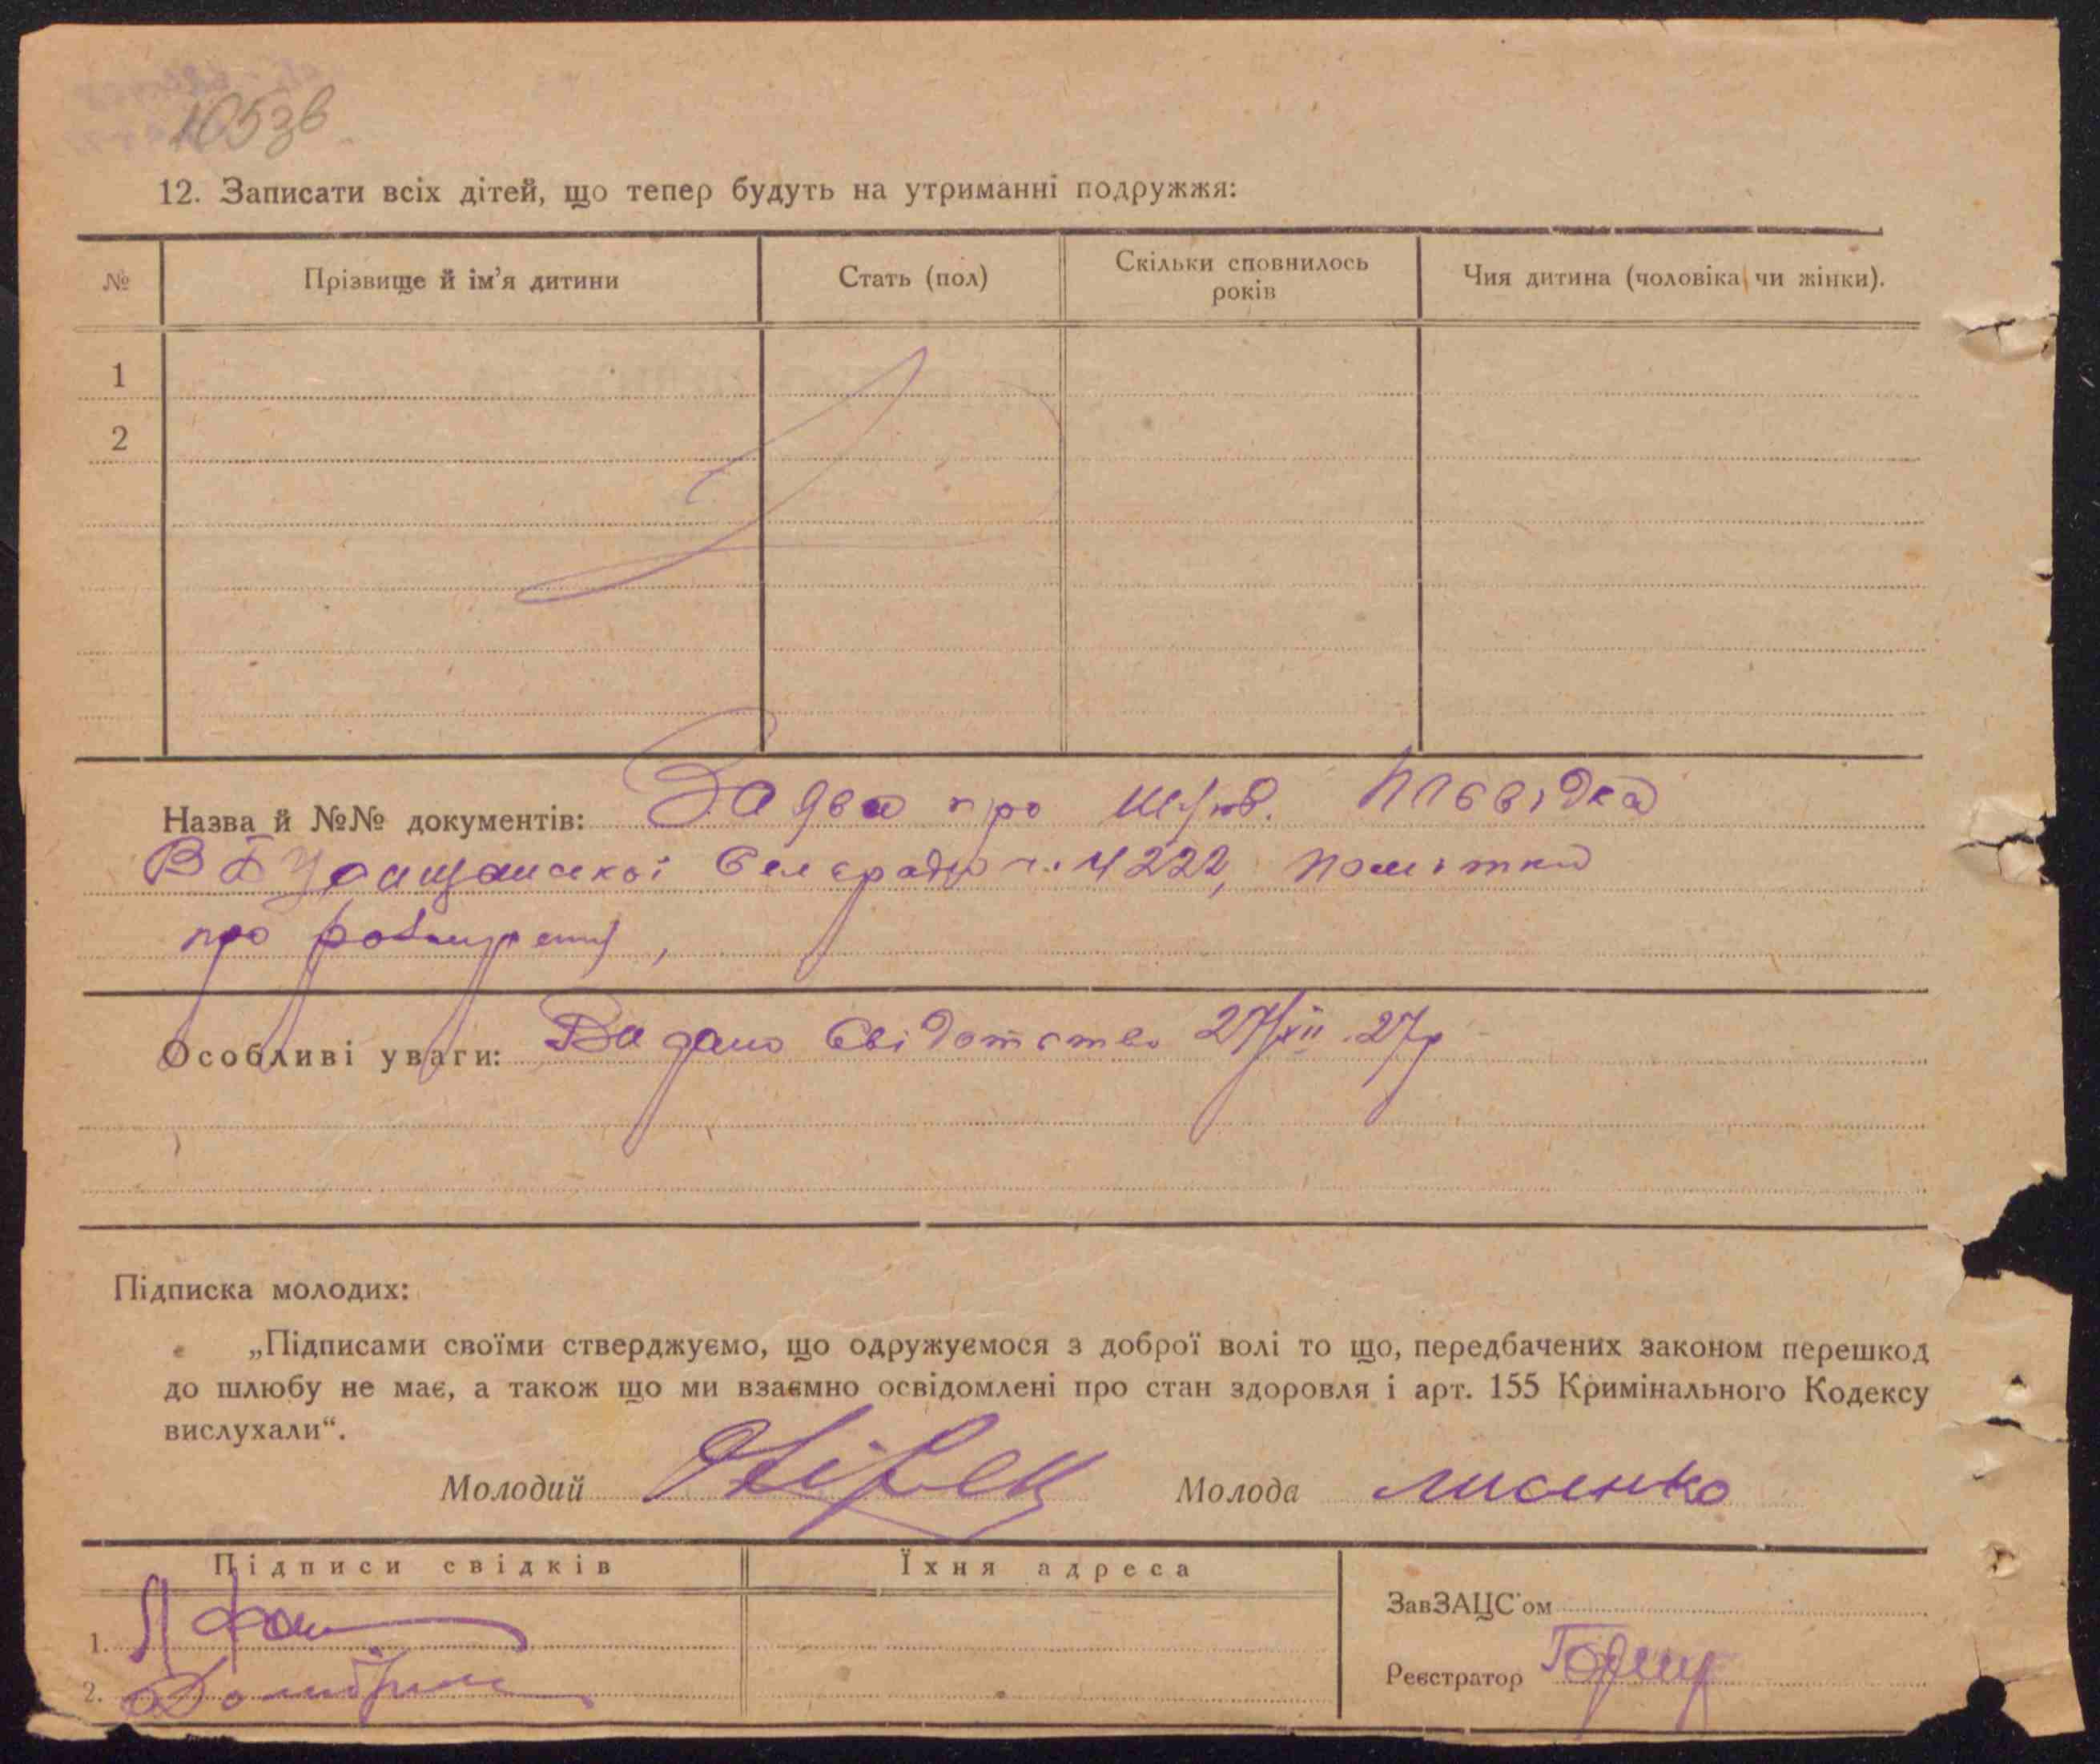 1053в
12. Записати всіх дітей, що тепер будуть на утриманні подружжя:
№ Прізвище й ім'я дитини Стать (пол) Скільки сповнилось років Чия дитина (чоловіка чи жінки).
1
2
Назва й №№ документів: Заява про шлюб.
сельради ч. 4222, помітка
про
Особливі уваги: Видано свідотство 27/XII 27р
Підписка молодих:
„Підписами своїми стверджуємо, що одружуємося з доброї волі то що, передбачених законом перешкод
до шлюбу не має, а також що ми взаємно освідомлені про стан здоровля і арт. 155 Кримінального Кодексу
вислухали“.
Молодий Молода Лисенко
Підписи свідків Їхня адреса
ЗавЗАЦС'ом
1.
Реєстратор
2.